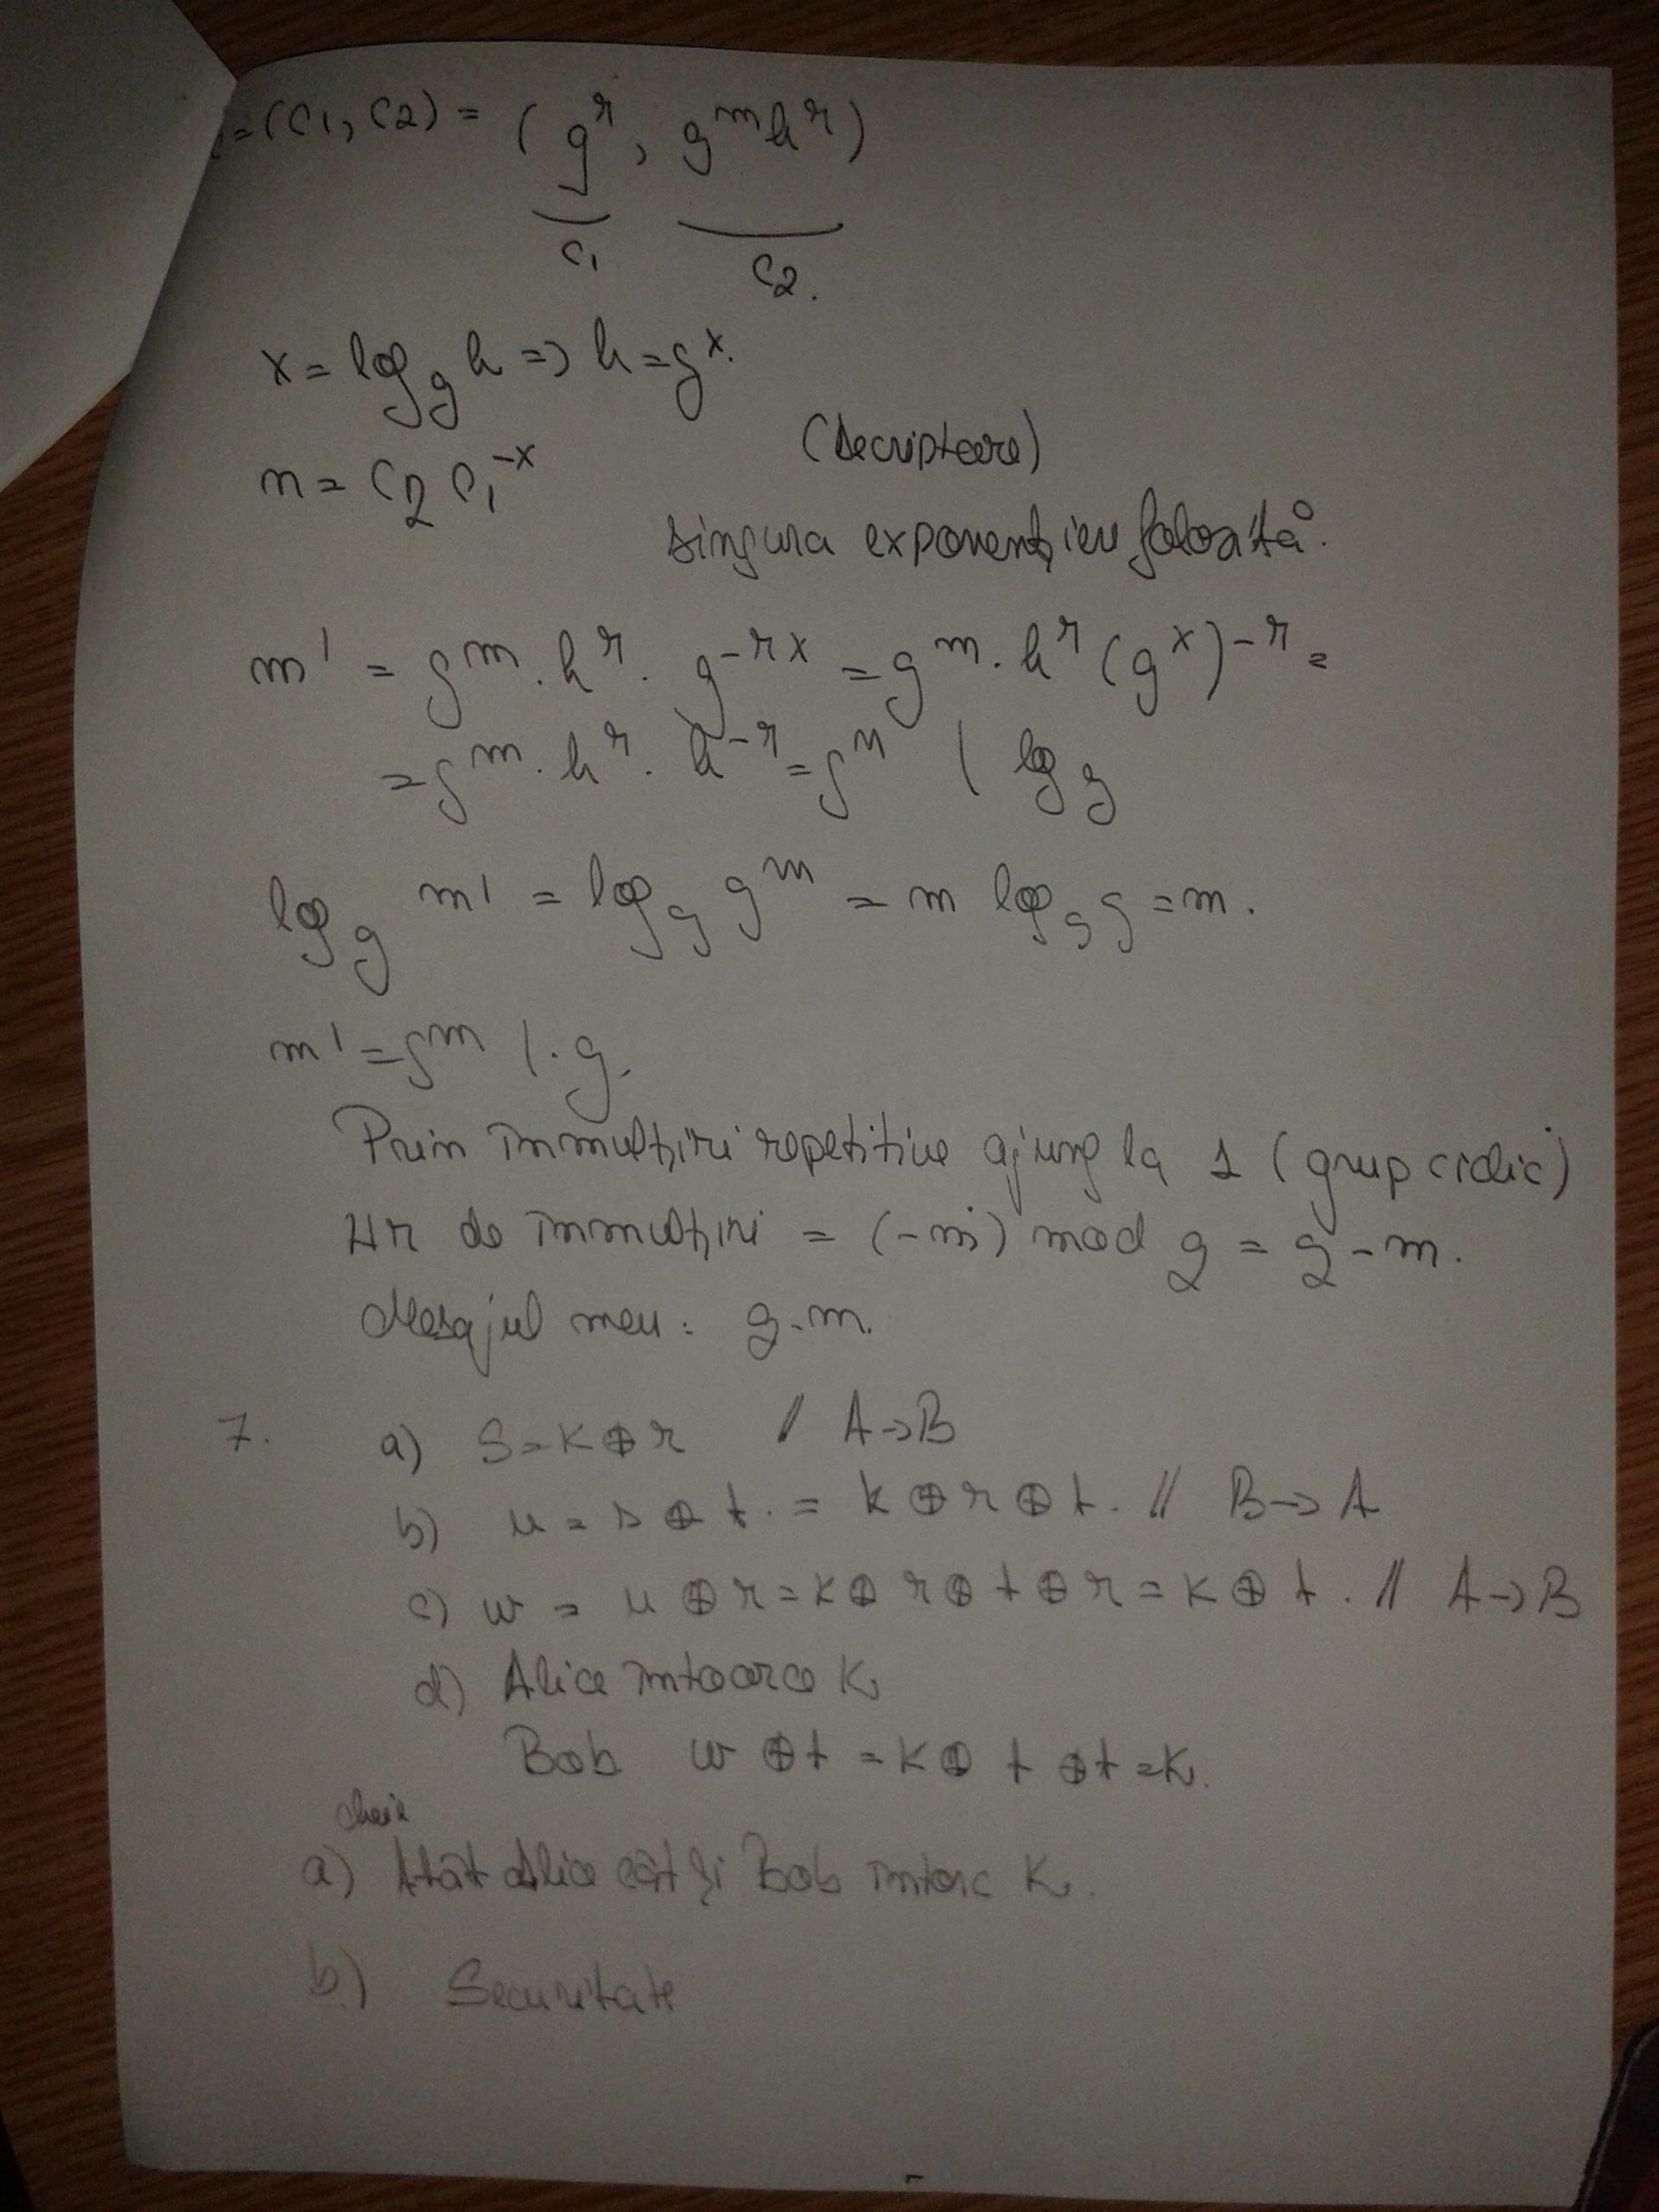 =(C1, C2) = (g^r, g^m h^r)
C1 C2.
x = log_g h => h = g^x.
(Decriptare)
m = C2 C1^-x
singura exponențiere folosită.
m' = g^m · h^r · g^-rx = g^m · h^r (g^x)^-r =
= g^m · h^r · h^-r = g^m | log_g
log_g m' = log_g g^m = m log_g g = m.
m' = g^m | · g.
Prin înmulțiri repetitive ajung la 1 (grup ciclic)
Nr de înmulțiri = (-m) mod q = q - m.
Mesajul meu: q - m.
7. a) S = K ⊕ r // A -> B
b) u = s ⊕ t. = k ⊕ r ⊕ t. // B -> A
c) w = u ⊕ r = k ⊕ r ⊕ t ⊕ r = k ⊕ t. // A -> B
d) Alice întoarce K
Bob w ⊕ t = k ⊕ t ⊕ t = K.
cheie
a) Atât Alice cât și Bob întorc K.
b) Securitate